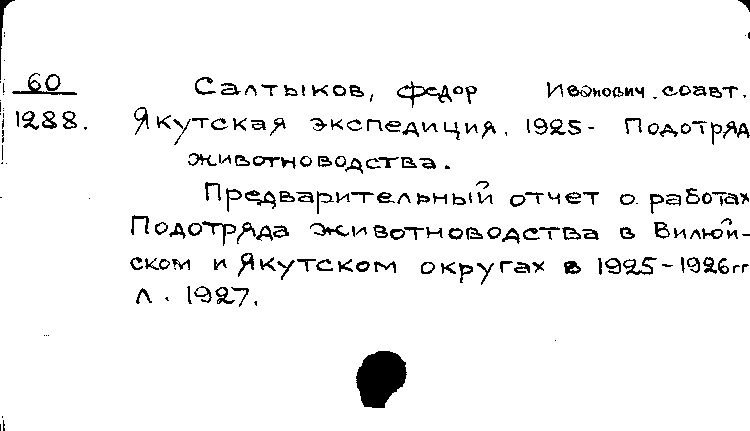 60 Салтыков, Федор Иванович. соавт.
1288. Якутская экспедиция. 1925- Подотряд
животноводства.
Предварительный отчет о работах
Подотряда животноводства в Вилюй-
ском и Якутском округах в 1925-1926гг
Л. 1927.